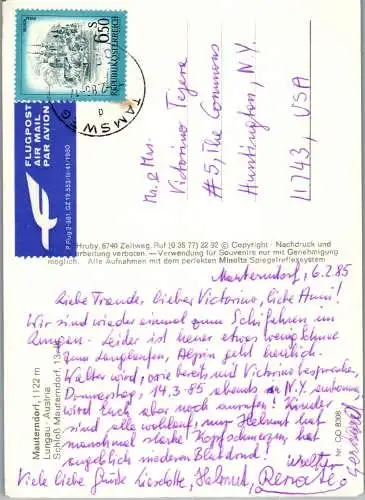 S 6.50
REPUBLIK ÖSTERREICH
TAMSWEG
FLUGPOST
AIR MAIL
PAR AVION
Mr. & Mrs.
Victorino Tejera
#5, The Commons
Huntington, N.Y.
11743, USA
Hruby, 8740 Zeltweg, Ruf (0 35 77) 22 92 © Copyright · Nachdruck und
arbeitung verboten. — Verwendung für Souvenirs nur mit Genehmigung
möglich. Alle Aufnahmen mit dem perfekten Minolta Spiegelreflexsystem
Mauterndorf, 1122 m
Lungau · Austria
Schloß Mauterndorf, 13
Nr. CO 8308
Mauterndorf, 6.2.85
Liebe Traude, lieber Victorino, liebe Anni!
Wir sind wieder einmal zum Schifahren im
Lungau. Leider ist heuer etwas wenig Schnee
zum Langlaufen, Alpin geht herrlich.
Walter wird, wie bereits mit Victorino besprochen,
Donnerstag, 14.3.85 abends in N.Y. ankommen,
wird Euch aber noch anrufen! Kinder
sind alle wohlauf, nur Helmut hat
manchmal starke Kopfschmerzen, hat
angeblich niederen Blutdruck!
Viele liebe Grüße Liselotte, Helmut, Renate,
Walter